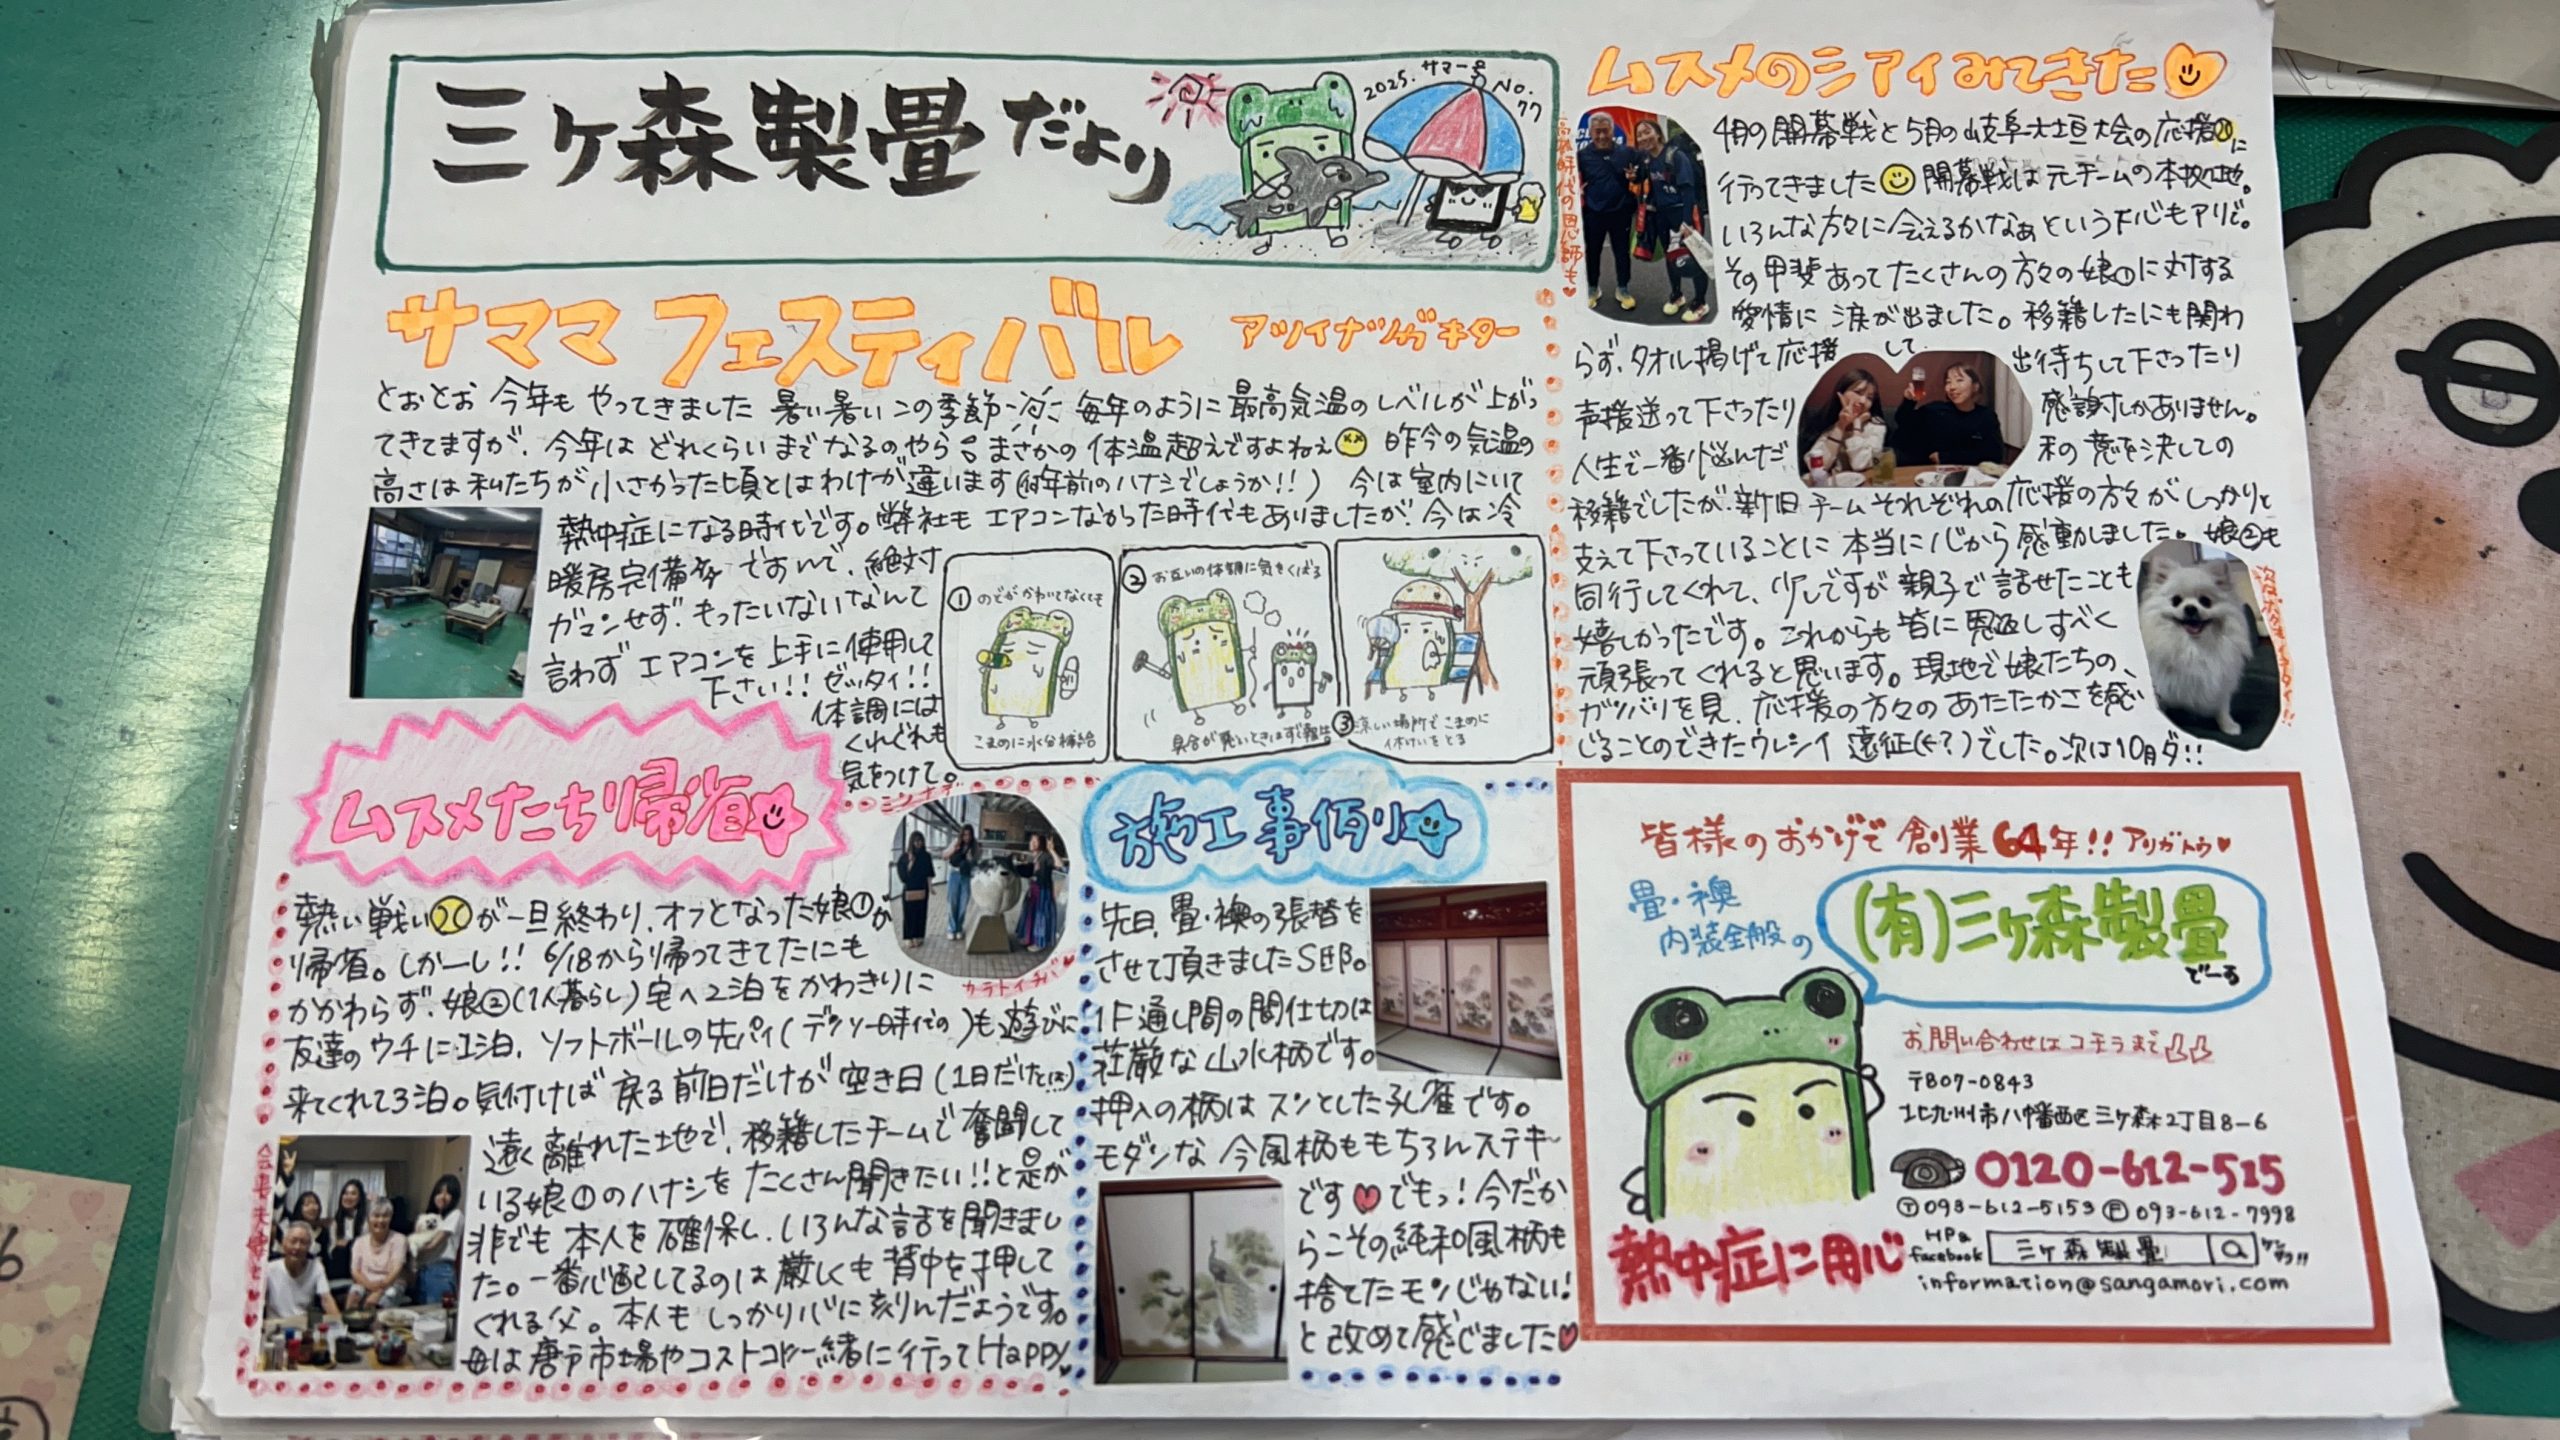 三ヶ森製畳だより
2025.サマー号
No.77
サママフェスティバル
アツイナツガキター
とおとお今年もやってきました暑い暑いこの季節 毎年のように最高気温のレベルが上がっ
てきてますが、今年はどれくらいまでなるのやら。まさかの体温超えですよねぇ 昨今の気温の
高さは私たちが小さかった頃とはわけが違います(何年前のハナシでしょうか!!) 今は室内にいて
熱中症になる時代です。弊社もエアコンなかった時代もありましたが、今は冷
暖房完備 ですんで、絶対
ガマンせず、もったいないなんて
言わずエアコンを上手に使用して
下さい!! ゼッタイ!!
体調には
くれぐれも
気をつけて。
①のどがかわいてなくても
こまめに水分補給
②お互いの体調に気をくばる
具合が悪いときは必ず報告
③涼しい場所でこまめに
休けいをとる
ムスメたち帰省
熱い戦いが一旦終わり、オフとなった娘①が
帰省。しかーし!! 6/18から帰ってきてたにも
かかわらず、娘②(1人暮らし)宅へ2泊をかわきりに
友達のウチに1泊、ソフトボールの先パイ(デンソー時代の)も遊びに
来てくれて3泊。気付けば戻る前日だけが空き日(1日だけとは)
遠く離れた地で、移籍したチームで奮闘して
いる娘①のハナシをたくさん聞きたい!!と是が
非でも本人を確保し、いろんな話を聞きまし
た。一番心配してるのは厳しくも背中を押して
くれる父。本人もしっかり心に刻んだようです。
母は唐戸市場やコストコに一緒に行ってHappy
ミンナデ
カラトイチバ♥
会長夫婦と♥
施工事例
先日、畳・襖の張替を
させて頂きましたS邸。
1F通し間の間仕切は
荘厳な山水柄です。
押入の柄はスンとした孔雀です。
モダンな今風柄ももちろんステキ〜
です♥でもっ!今だか
らこその純和風柄も
捨てたモンじゃない!
と改めて感じました♥
ムスメのシアイみてきた
高校時代の恩師も♥
4月の開幕戦と5月の岐阜大垣大会の応援に
行ってきました 開幕戦は元チームの本拠地。
いろんな方々に会えるかなぁという下心もアリで。
その甲斐あってたくさんの方々の娘①に対する
愛情に涙が出ました。移籍したにも関わ
らず、タオル掲げて応援して 出待ちして下さったり
声援送って下さったり 感謝しかありません。
人生で一番悩んだ 私の意を決しての
移籍でしたが、新旧チームそれぞれの応援の方々がしっかりと
支えて下さっていることに本当に心から感動しました。娘②も
同行してくれて、少しですが親子で話せたことも
嬉しかったです。これからも皆に恩返しすべく
頑張ってくれると思います。現地で娘たちの、
ガンバリを見、応援の方々のあたたかさを感
じることのできたウレシイ遠征(?)でした。次は10月ダ!!
皆様のおかげで創業64年!! アリガトウ♥
畳・襖
内装全般の
(有)三ヶ森製畳
でーす
お問い合わせはコチラまで
〒807-0843
北九州市八幡西区三ヶ森2丁目8-6
0120-612-515
Ⓣ093-612-5153 Ⓕ093-612-7998
HP&
facebook
三ヶ森製畳
ケンサク!!
information@sangamori.com
熱中症に用心